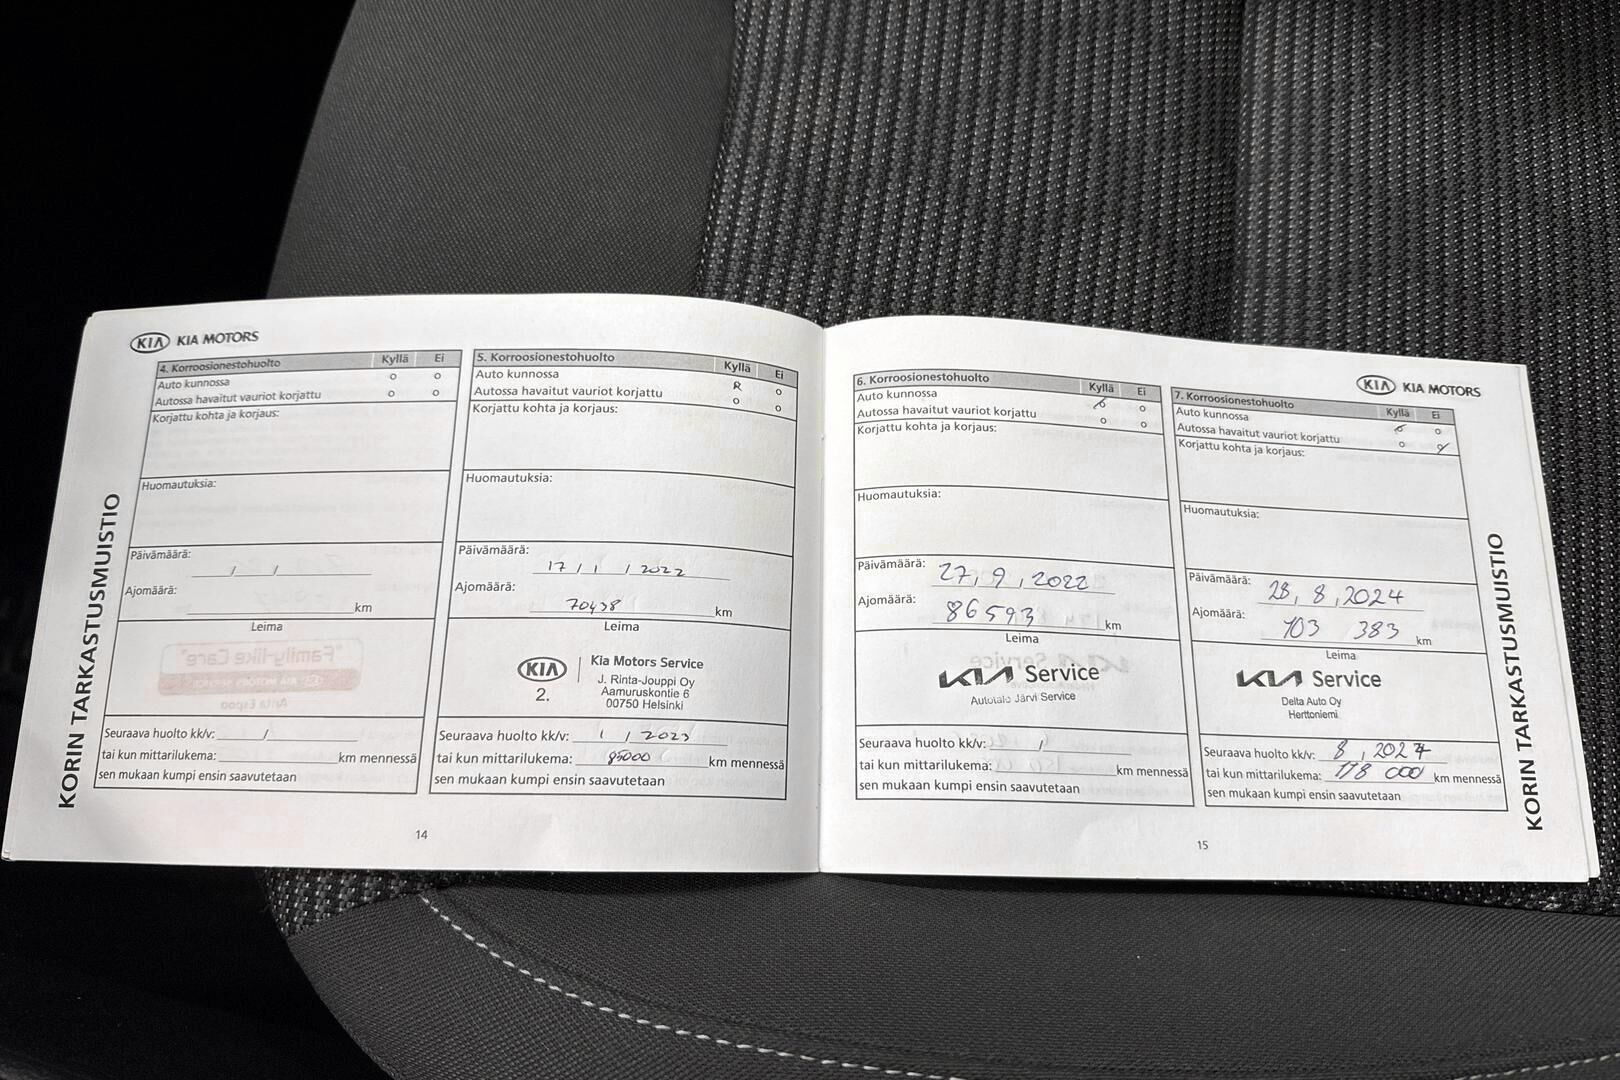 KIA KIA MOTORS
KORIN TARKASTUSMUISTIO
4. Korroosionestohuolto Kyllä Ei
Auto kunnossa o o
Autossa havaitut vauriot korjattu o o
Korjattu kohta ja korjaus:
Huomautuksia:
Päivämäärä:
/ /
Ajomäärä:
km
Leima
Seuraava huolto kk/v: /
tai kun mittarilukema: km mennessä
sen mukaan kumpi ensin saavutetaan
5. Korroosionestohuolto Kyllä Ei
Auto kunnossa o
Autossa havaitut vauriot korjattu o o
Korjattu kohta ja korjaus:
Huomautuksia:
Päivämäärä:
17 / 1 / 2022
Ajomäärä:
70438 km
Leima
KIA Kia Motors Service
J. Rinta-Jouppi Oy
2. Aamuruskontie 6
00750 Helsinki
Seuraava huolto kk/v: 1 / 2023
tai kun mittarilukema: 85000 km mennessä
sen mukaan kumpi ensin saavutetaan
14
KIA KIA MOTORS
6. Korroosionestohuolto Kyllä Ei
Auto kunnossa o
Autossa havaitut vauriot korjattu o o
Korjattu kohta ja korjaus:
Huomautuksia:
Päivämäärä: 27, 9, 2022
Ajomäärä: 86593 km
Leima
KIA Service
Autotalo Järvi Service
Seuraava huolto kk/v: /
tai kun mittarilukema: km mennessä
sen mukaan kumpi ensin saavutetaan
7. Korroosionestohuolto Kyllä Ei
Auto kunnossa o
Autossa havaitut vauriot korjattu o
Korjattu kohta ja korjaus:
Huomautuksia:
Päivämäärä: 28, 8, 2024
Ajomäärä: 103 383 km
Leima
KIA Service
Delta Auto Oy
Herttoniemi
Seuraava huolto kk/v: 8, 2027
tai kun mittarilukema: 178 000 km mennessä
sen mukaan kumpi ensin saavutetaan
15
KORIN TARKASTUSMUISTIO